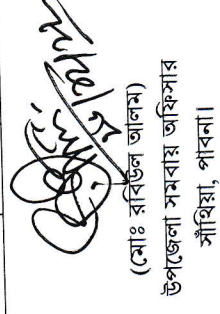 (মোঃ রবিউল আলম)
উপজেলা সমবায় অফিসার
সাঁথিয়া, পাবনা।